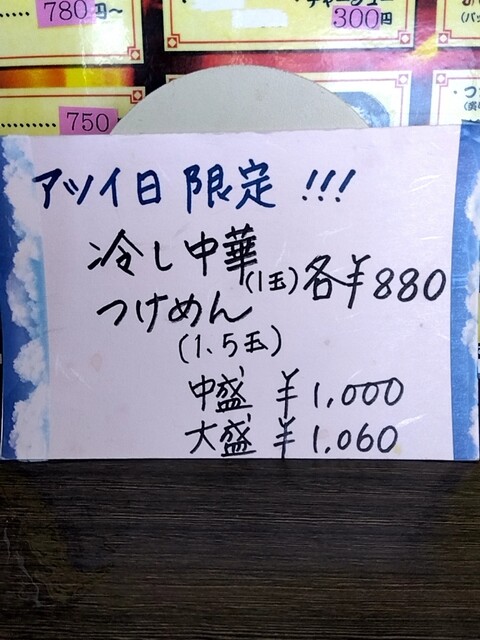 780円~
チャーシュー
300円
750
アツイ日 限定 !!!
冷し中華(1玉) 各¥880
つけめん
(1.5玉)
中盛 ¥1,000
大盛 ¥1,060